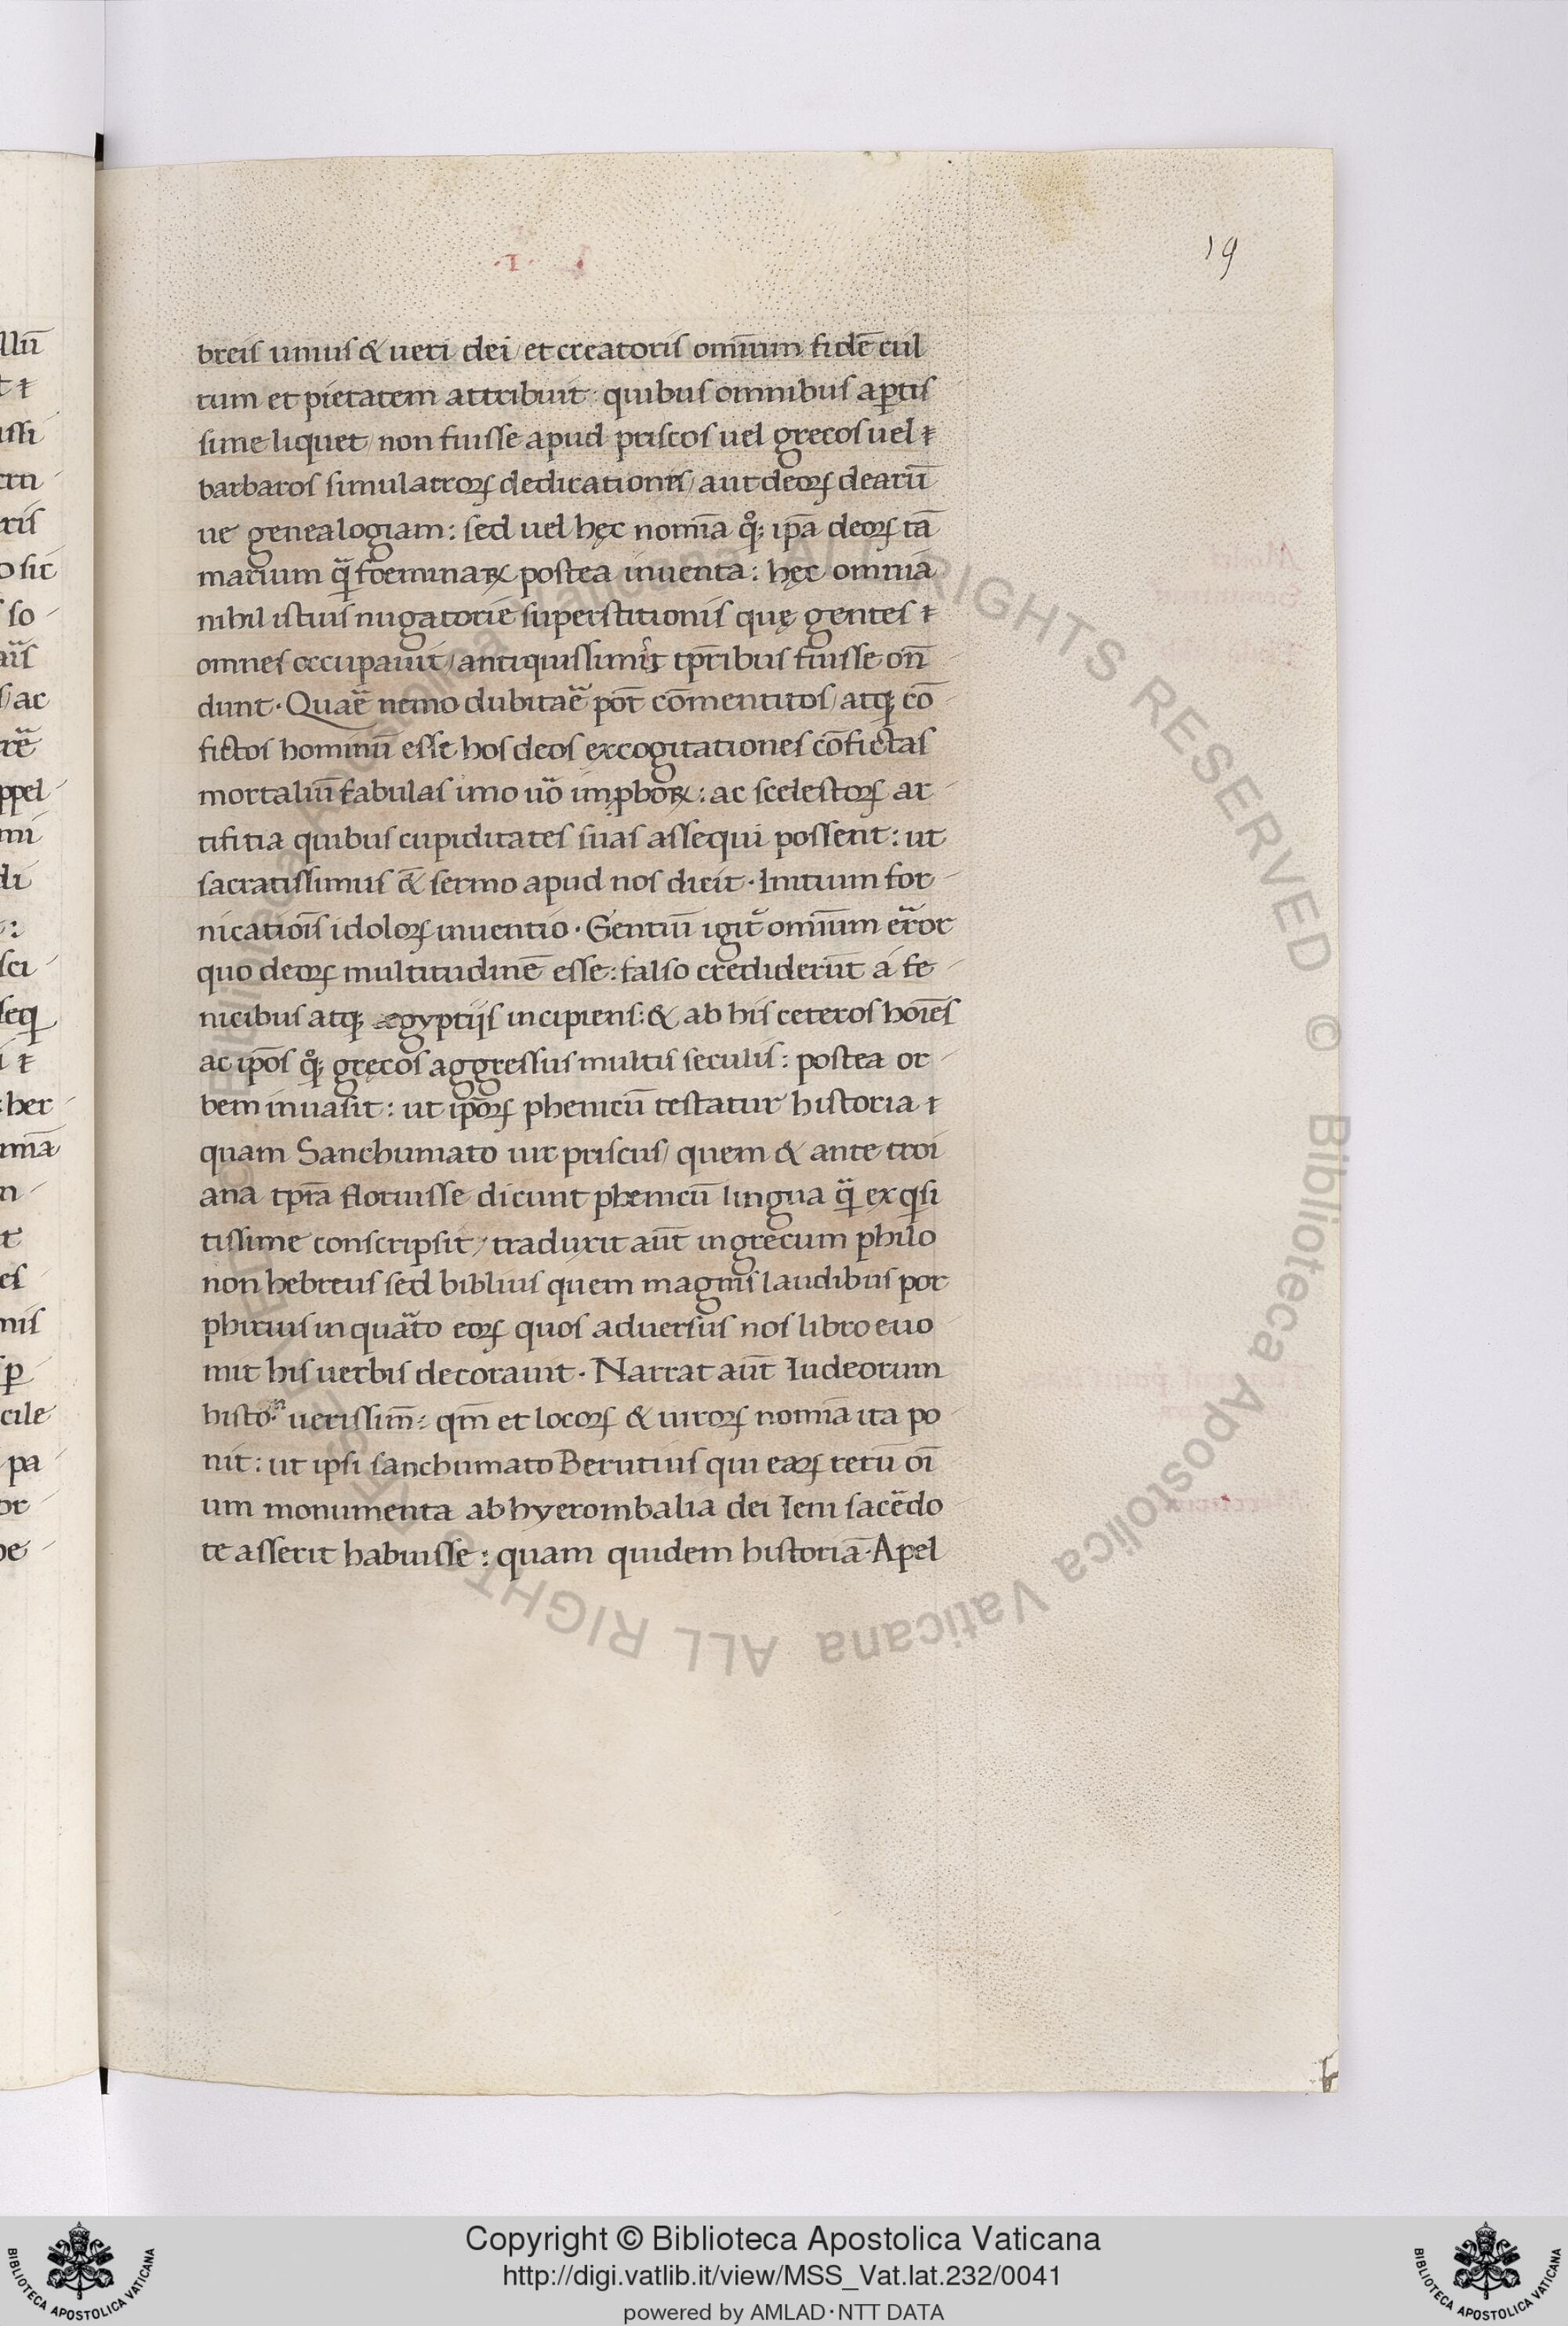 19
·I·
breis unius & ueri dei / et creatoris omnium fidē cul
tum et pietatem attribuit : quibus omnibus aptis
sime liquet / non fuisse apud priscos uel grecos uel
barbaros simulacroꝝ dedicationes / aut deoꝝ dearū
ue genealogiam : sed uel hęc nomīa qͦꝫ ip̄a deoꝝ tā
marium q̄ foeminaꝝ postea inuenta : hęc omnia
nihil istius nugatorie superstitionis quę gentes
omnes occupauit / antiquissimis tp̄ribus fuisse on̄
dunt · Quaē nemo dubitaē pot̄ cōmentitos / atqꝫ cō
fictos hominū esse hos deos excogitationes cōfictas
mortaliū fabulas imo uō imꝓboꝝ : ac scelestoꝝ ar
tifitia quibus cupiditates suas assequi possent : ut
sacratissimus &̄ sermo apud nos dicit · Initium for
nicatiōis idoloꝝ inuentio · Gentiū igit̄ omnium error
quo deoꝝ multitudinē esse : falso crediderūt á fe
nicibus atqꝫ ægyptijs incipiens : & ab his ceteros hoīes
ac ip̄os qͦꝫ gręcos aggressus multis seculis : postea or
bem inuasit : ut ip̄oꝝ phenicū testatur historia
quam Sanchuniato uir priscus / quem & ante troi
ana tp̄ra floruisse dicunt phenicū lingua q̄ exqsi
tissime conscripsit / traduxit aūt in grecum philo
non hebreus sed biblius quem magnis laudibus por
phirius in quarto eoꝝ quos aduersus nos libro euo
mit his uerbis decorauit · Narrat aūt Iudeorum
histo. uerissim̄ : qm̄ et locoꝝ & uiroꝝ nomīa ita po
nit : ut ipsi sanchuniato Berutius qui eaꝝ rerū oī
um monumenta ab hyerombalia dei Ieui sacerdo
te asserit habuisse : quam quidem historiā · Apel
llū
Copyright © Biblioteca Apostolica Vaticana
http://digi.vatlib.it/view/MSS_Vat.lat.232/0041
powered by AMLAD·NTT DATA
BIBLIOTECA APOSTOLICA VATICANA
BIBLIOTECA APOSTOLICA VATICANA
© Biblioteca Apostolica Vaticana ALL RIGHTS RESERVED © Biblioteca Apostolica Vaticana ALL RIGHTS RESERVED